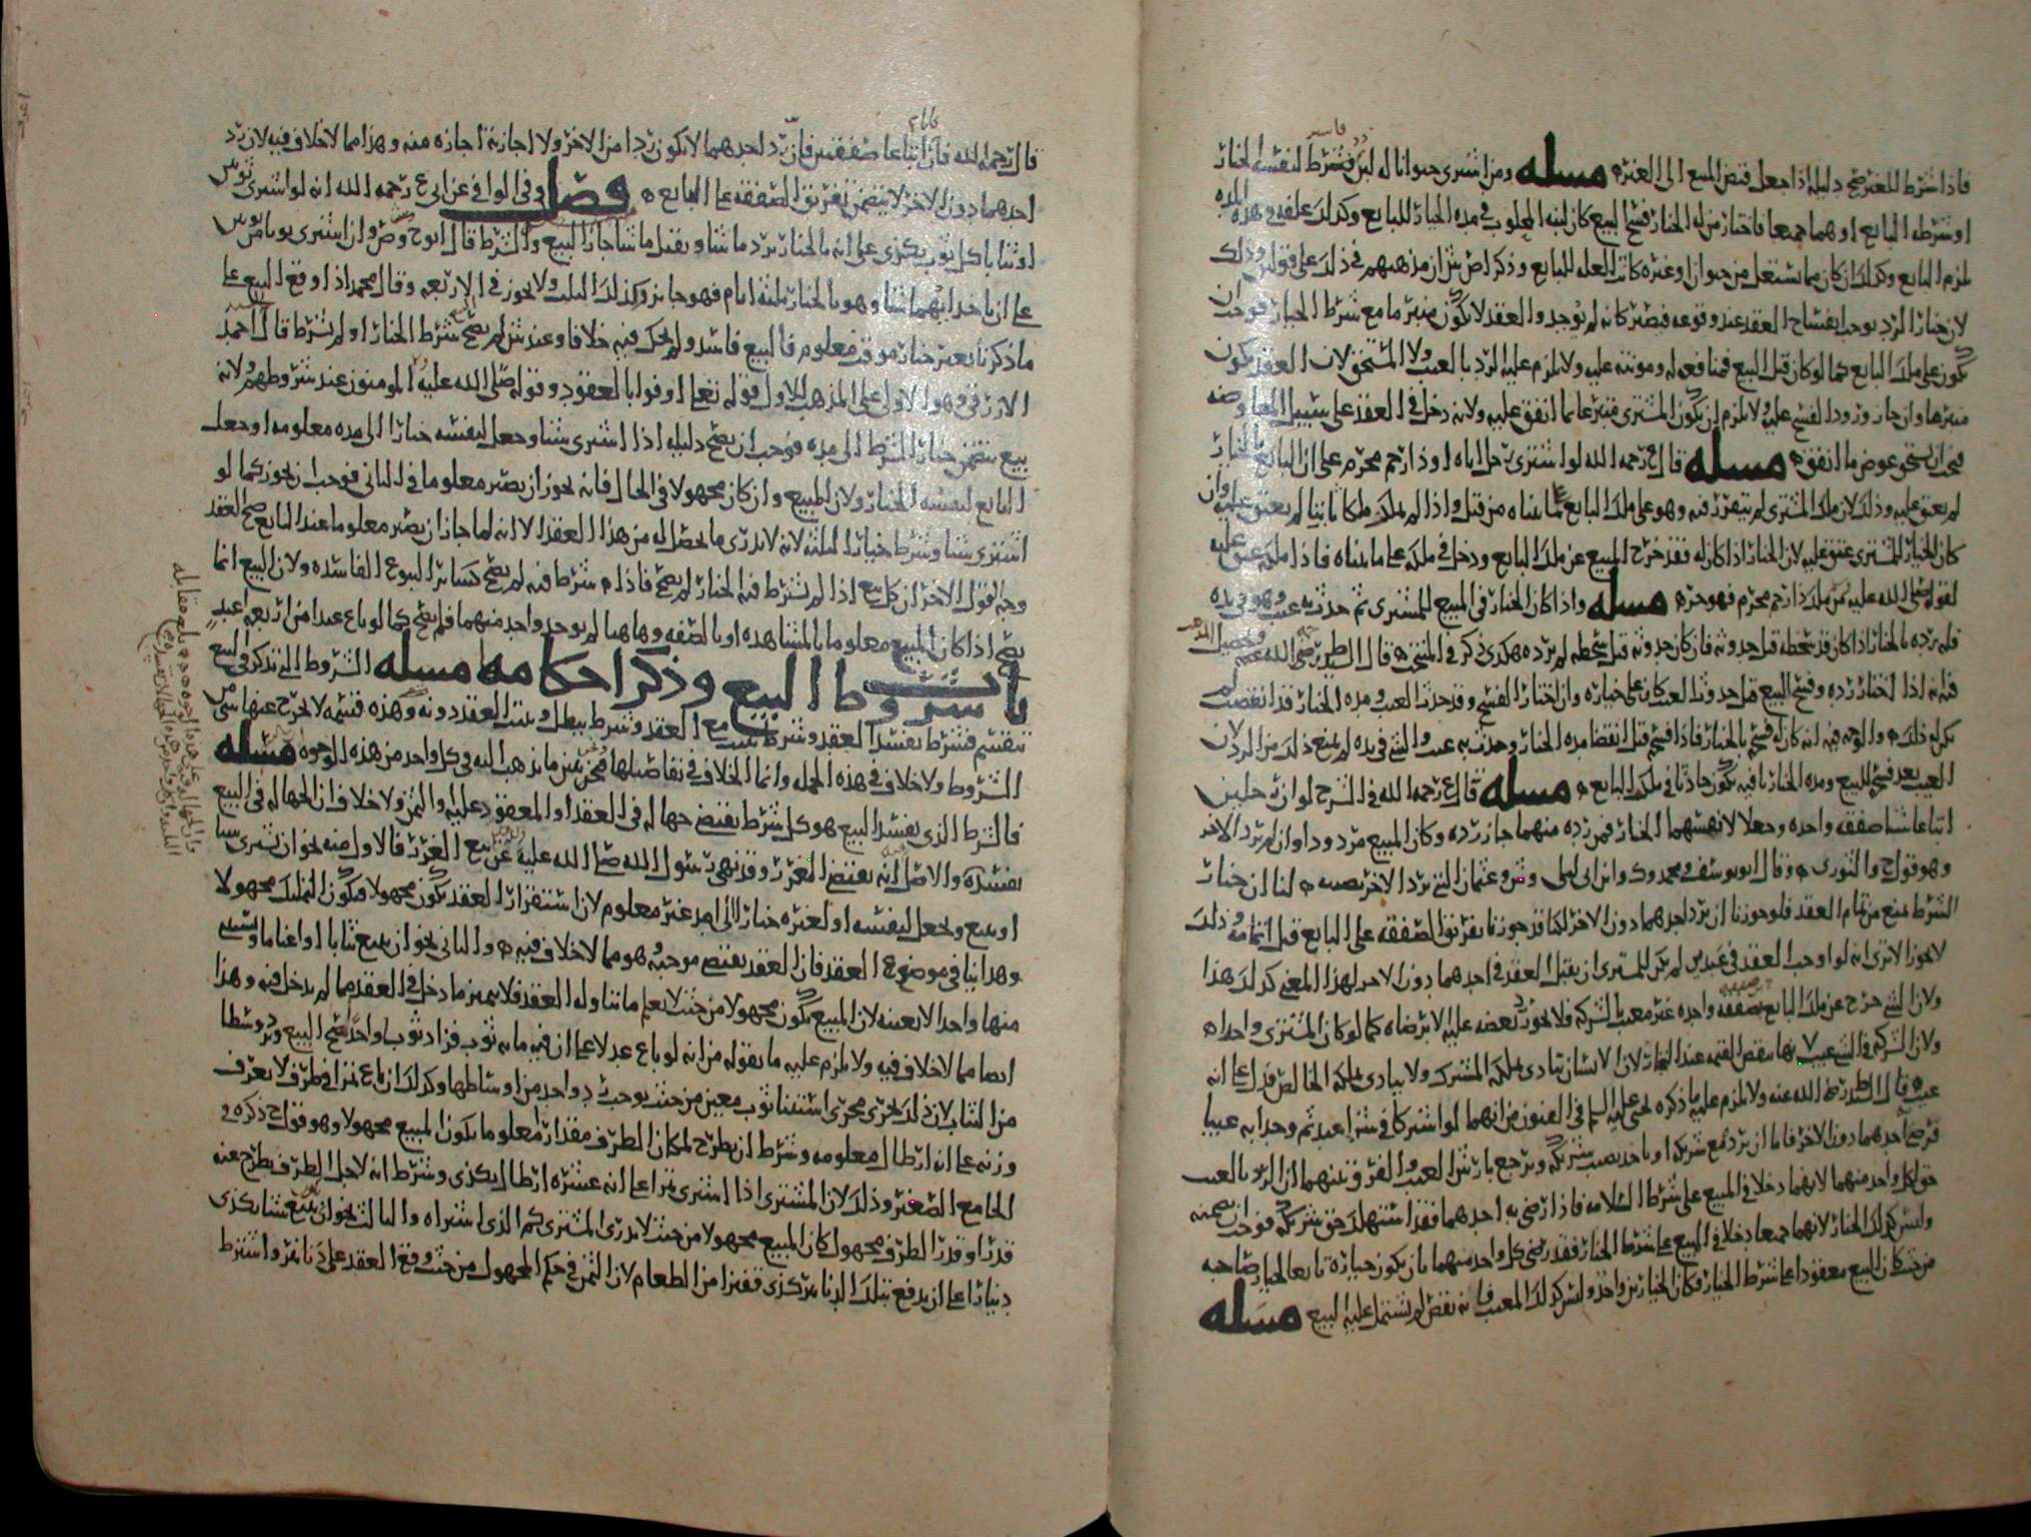 فاذا شرط للغير صح دليله اذا جعل قبض المبيع الى الغير مسله ومن اشترى حيوانا له لبن فشرط لنفسه الخيار
او شرطه البايع او هما جميعا فاختار من له الخيار فسخ البيع كان لبنه المحلوب في مده الخيار للبايع وكذلك علفه في هذه المده
يلزم البايع وكذلك ان كان مما يستغل من حيوان او غيره كانت الغله للبايع وذكر اص ش ان مذهبهم في ذلك على قولين وذلك
لان خيار الرد يوجب انفساخ العقد عند وقوعه فيصير كانه لم يوجد والعقد لا يكون منبرما مع شرط الخيار فوجب ان
يكون على ملك البايع كما لو كان قبل البيع فمنافعه له ومونته عليه ولا يلزم عليه الرد بالعيب ولا المستحق لان العقد يكون
منبرما وان جاز ورود الفسخ عليه ولا يلزم ان يكون المشتري متبرعا بما انفق عليه ولانه دخل في العقد على سبيل المعاوضه
فيجب ان يستحق عوض ما انفق مسله قال ع رحمه الله لو اشترى رجل اباه او ذا رحم محرم على ان البايع بالخيار
لم يعتق عليه وذلك لان ملك المشتري لم يتقرر فيه وهو على ملك البايع كما بيناه من قبل واذا لم يملك ملكا ثابتا لم يعتق عليه وان
كان الخيار للمشتري عتق عليه لان الخيار اذا كان له فقد خرج المبيع عن ملك البايع ودخل في ملكه على ما بيناه فاذا ملكه عتق عليه
لقوله صلى الله عليه من ملك ذا رحم محرم فهو حر مسله واذا كان الخيار في المبيع للمشتري ثم حدث به عيب وهو في يده
فله رده بالخيار اذا كان قد سخطه قبل حدوثه فان كان حدوثه قبل سخطه لم يرده هكذى ذكر في المنتخب قال السيد ط رضي الله عنه
فله اذا اختار رده وفسخ البيع قبل حدوث العيب كان على خياره وان اختار الفسخ وقد حدث العيب ومده الخيار قد انقضت لم
يكن له ذلك والوجه فيه انه كان له فسخه بالخيار فاذا فسخ قبل انقضا مده الخيار وحدث به عيب والشي في يده لم يمنع ذلك من الرد لان
العيب بعد فسخ البيع ومده الخيار باقيه يكون حادثا في ملك البايع مسله قال ع رحمه الله في الشرح لو ان رجلين
ابتاعا شيا صفقه واحده وجعلا لانفسهما الخيار فمن رده منهما جاز رده وكان المبيع مردودا وان لم يرد الاخر
وهو قول ح والثوري وقال ابو يوسف ومحمد وك وابن ابي ليلى وش وعثمان البتي يرد الاخر نصيبه لنا ان خيار
الشرط يمنع من تمام العقد فلو جوزنا ان يرد احدهما دون الاخر لكنا قد جوزنا تفريق الصفقه على البايع قبل اتمامه وذلك
لا يجوز الا ترى انه لو اوجب العقد في عبدين لم يكن للمشتري ان يقبل العقد في احدهما دون الاخر لهذا المعنى كذلك هذا
ولان الشي خرج عن ملك البايع بصفقه واحده غير معيب الشركه فلا يجوز رد بعضه عليه الا برضاه كما لو كان المشتري واحدا
ولان الشركه في الشي عيب بها ينقص القيمه عند التجار لان الانسان يتاذى بملكه المشترك ولا يتاذى بملكه الخالص فدل على انه
عيب قال السيد ط رضي الله عنه ولا يلزم عليه ما ذكره يحيى عليه السلم في الفنون من انهما لو اشتركا في شرا عبد ثم وجدا به عيبا
فرضي احدهما دون الاخر فاما ان يرد مع شريكه او ياخذ نصيب شريكه ويرجع بارش العيب والفرق بينهما ان الرد بالعيب
حق لكل واحد منهما لانهما دخلا في المبيع على شرط السلامه فاذا رضي به احدهما فقد استهلك حق شريكه فوجب ان يضمنه
وليس كذلك الخيار لانهما جميعا دخلا في المبيع على شرط الخيار فقد رضي كل واحد منهما بان يكون خياره تابعا لخيار صاحبه
من حيث كان البيع معقودا على شرط الخيار وكان الخيار من واحد وليس كذلك المعيب فانه نقص لم يشتمل عليه البيع مسله
قال رحمه الله فان ابتاعا صفقتين فان رد احدهما لا يكون ردا من الاخر ولا اجازته اجازه منه وهذا مما لا خلاف فيه لان رد
احدهما دون الاخر لا يتضمن تفريق الصفقه على البايع فصل وفي الوافي عن ابي ع رحمه الله انه لو اشترى ثوبين
او ثيابا كل ثوب بكذى على انه بالخيار يرد ما شا ويقبل ما شا جاز البيع والشرط قال ابو ح وص وان اشترى ثوبا من ثوبين
على ان ياخذ ايهما شا وهو بالخيار ثلثه ايام فهو جايز وكذلك الثلث ولا يجوز في الاربعه وقال محمد اذا وقع البيع على
ما ذكرنا بغير خيار موقت معلوم فالبيع فاسد ولم يحك فيه خلافا وعند ش لم يصح شرط الخيار او لم يشرط قال احمد
الازرقي وهو الاولى على المذهب للاول قوله تعالى اوفوا بالعقود وقوله صلى الله عليه المومنون عند شروطهم ولانه
بيع يتضمن خيار الشرط الى مده فوجب ان يصح دليله اذا اشترى شيا وجعل لنفسه خيارا الى مده معلومه او جعل
البايع لنفسه الخيار ولان المبيع وان كان مجهولا في الحال فانه يجوز ان يصير معلوما في الثاني فوجب ان يجوز كما لو
اشترى شيا وشرط خيار الثلثه لانه لا يدرى ما يحصل له من هذا العقد الا انه لما جاز ان يصير معلوما عند البايع صح العقد
وجه القول الاخر ان كل بيع اذا لم يشرط فيه الخيار لم يصح فاذا شرط فيه لم يصح كساير البيوع الفاسده ولان البيع انما
يصح اذا كان المبيع معلوما بالمشاهده او بالصفه وهاهنا لم يوجد واحد منهما فلم يصح كما لو باع عبدا من اربعه اعبد
باب شروط البيع وذكر احكامه مسله الشروط التي تذكر في البيع
تنقسم فشرط يفسد العقد وشرط يثبت مع العقد وشرط يبطل ويثبت العقد دونه وهذه قسمه لا يخرج عنها شي من
الشروط ولا خلاف في هذه الجمله وانما الخلاف في تفاصيلها ونحن نبين ما نذهب اليه في كل واحد من هذه الوجوه مسله
فالشرط الذي يفسد البيع هو كل شرط يقتضي جهاله في العقد او المعقود عليه او الثمن ولا خلاف ان الجهاله في البيع
يفسده والاصل انه يقتضي الغرر وقد نهى رسول الله صلى الله عليه عن بيع الغرر فالاول منه نحو ان يشتري شيا
او يبيع ويجعل لنفسه او لغيره خيارا الى امد غير معلوم لان استقرار العقد يكون مجهولا فيكون التمليك مجهولا
وهذا ينافي موضوع العقد فان العقد يقتضي موجبه وهو مما لا خلاف فيه والثاني نحو ان يبيع ثيابا او اغناما ويستثني
منها واحدا لا بعينه لان المبيع يكون مجهولا من حيث لا يعلم ما تناوله العقد فلا يميز ما دخل في العقد مما لم يدخل فيه وهذا
ايضا مما لا خلاف فيه ولا يلزم عليه ما نقوله من انه لو باع عدلا على ان فيه مايه ثوب فزاد ثوب واحد صح البيع ويرد وسطا
من الثياب لان ذلك يجري مجرى استثنا ثوب معين من حيث يوجب رد واحد من اوساطها وكذلك ان باع تمرا في ظرف لا يعرف
وزنه على انه ارطال معلومه وشرط ان يطرح لمكان الظرف مقدارا معلوما يكون المبيع مجهولا وهو قول ح ذكره في
الجامع الصغير وذلك لان المشتري اذا اشترى تمرا على انه عشره ارطال بكذى وشرط انه لاجل الظرف يطرح عنه
قدرا وقدر الظرف مجهول كان المبيع مجهولا من حيث لا يدرى المشتري كم الذي اشتراه والثالث نحو ان يبيع شيا بكذى
دينارا على ان يدفع بتلك الدنانير كذى قفيزا من الطعام لان الثمن في حكم المجهول من حيث وقع العقد على دنانير واشترط